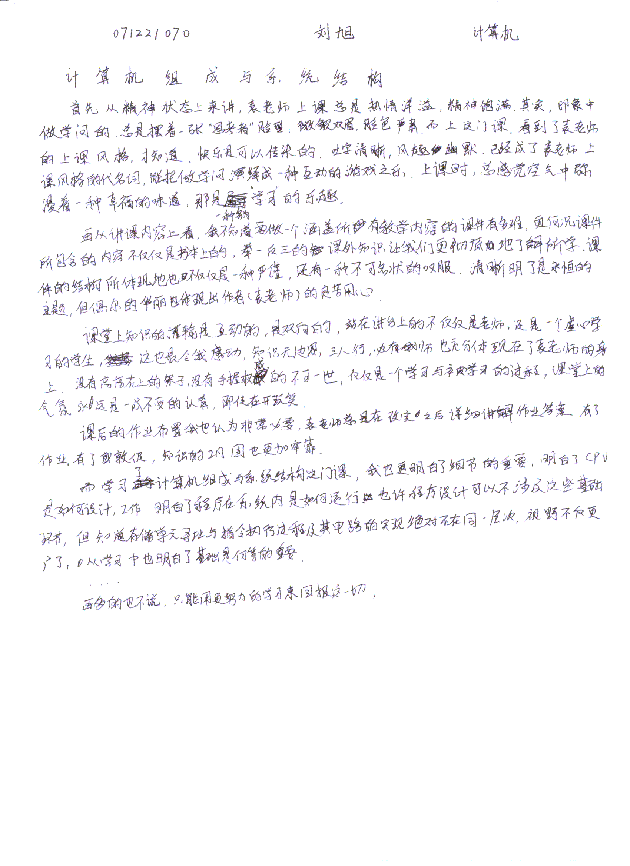 071221070 刘旭 计算机
计算机组成与系统结构
首先从精神状态上来讲,袁老师上课总是热情洋溢,精神饱满.其实,印象中
做学问的总是摆着一张"老者"脸,脸色严肃.而上这门课,看到了袁老师
的上课风格,才知道,快乐是可以传染的.吐字清晰,风趣幽默已经成了袁老师上
课风格的代名词,能把做学问演绎成一种互动的游戏之后,上课时,总感觉空气中弥
漫着一种幸福的味道,那是一种学习的乐趣.
再从讲课内容上看,我不知道要做一个涵盖所有教学内容的课件有多难,更何况课件
所包含的内容不仅仅是书本上的,举一反三的课外知识让我们更加地了解所学.课
件的结构所体现地也不仅仅是一种严谨,还有一种不可名状的叹服.清晰明了是永恒的
主题,但偶尔的华丽也体现出作者(袁老师)的良苦用心.
课堂上知识的灌输是互动的,是双向的,站在讲台上的不仅仅是老师,还是一个虚心学
习的学生,这也最令我感动,知识无边界,三人行,必有我师也充分体现在了袁老师的身
上.没有高高在上的架子,没有手握权威的不可一世,仅仅是一个学习与的过程,课堂上的
气氛
课后的作业布置我也认为非常必要,袁老师总是在改完之后详细讲解作业答案.有了
作业,有了,知识的巩固也更加牢靠.
而学习了计算机组成与系统结构这门课,我也更明白了细节的重要,明白了CPU
是如何设计,工作,明白了程序在系统内是如何运行.也许程序设计可以不涉及这些基础
环节,但知道存储单元寻址与指令执行过程及其电路的实现绝对不在同一层次,视野不仅更
广了,从学习中也明白了基础是何等的重要.
.....
再多的也不说,只能用更努力的学习来回报这一切.